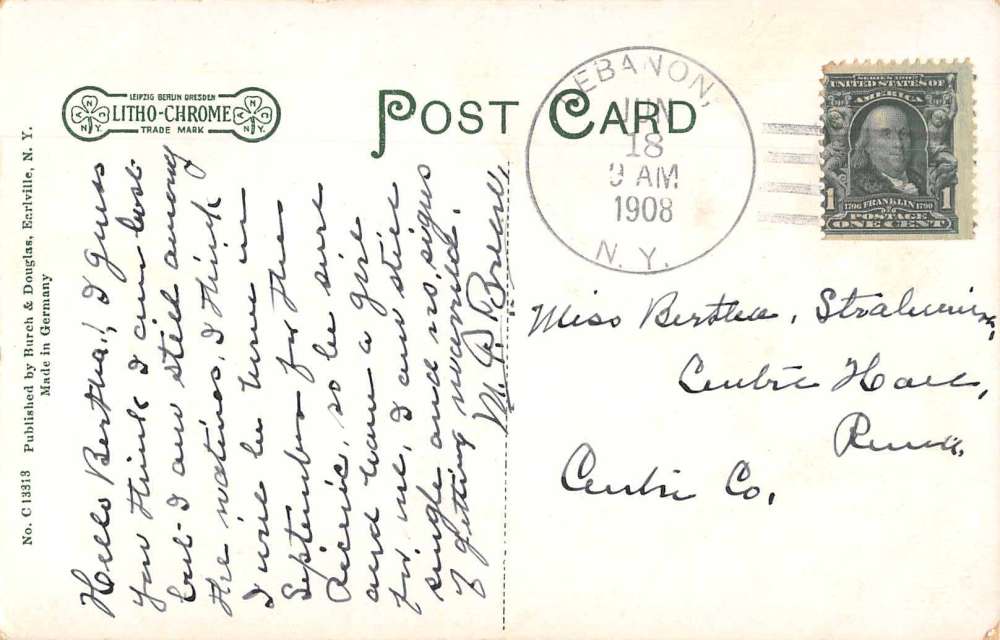 LEIPZIG BERLIN DRESDEN
LITHO-CHROME
TRADE MARK
N.Y.
N.Y.
POST CARD
LEBANON,
JUN
18
9 AM
1908
N. Y.
SERIES 1902
UNITED STATES OF
AMERICA
1 1
1706 FRANKLIN 1790
POSTAGE
ONE CENT
No. C 13313 Published by Burch & Douglas, Earlville, N. Y.
Made in Germany
Hello Bertha!, I guess
you think I am lost
but I am still among
the natives, I think
I will be home in
September for the
Picnic, so be sure
and have a girl
for me, I am still
single and no signs
of getting married.
M. D.
Miss Bertha
Centre Hall,
Penna,
Centre Co,